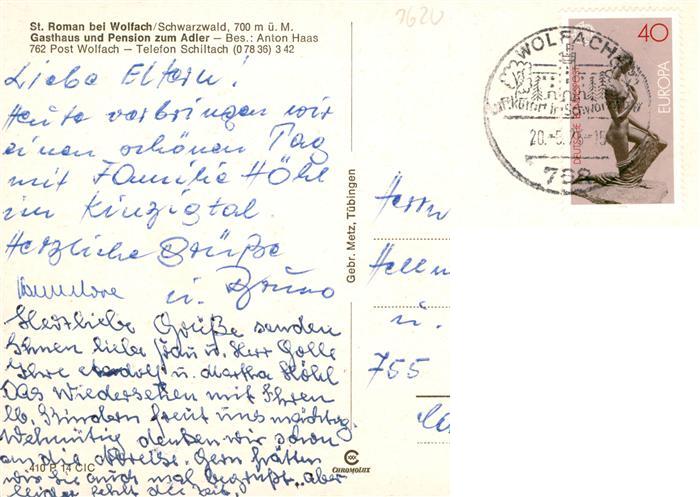 St. Roman bei Wolfach/Schwarzwald, 700 m ü. M.
Gasthaus und Pension zum Adler – Bes.: Anton Haas
762 Post Wolfach – Telefon Schiltach (0 78 36) 3 42
7620
Liebe Eltern!
Heute verbringen wir
einen schönen Tag
mit Familie Höhl
im Kinzigtal.
Herzliche Grüße
Hannelore u. Bruno
Herzliche Grüße senden
Ihnen liebe Frau u. Herr Golle
Ihre u. Martha Höhl
Das Wiedersehen mit Ihren
lb. Kindern freut uns mächtig.
Wehmütig denken wir schon
an die Abreise. Gern hätten
wir Sie auch mal begrüßt, aber
leider fehlt die Zeit.
410 P 14 CIC
CHROMOLUX
Gebr. Metz, Tübingen
WOLFACH
Luftkurort im Schwarzwald
20.-5.
762
40
EUROPA
DEUTSCHE BUNDESPOST
Herrn
u.
755